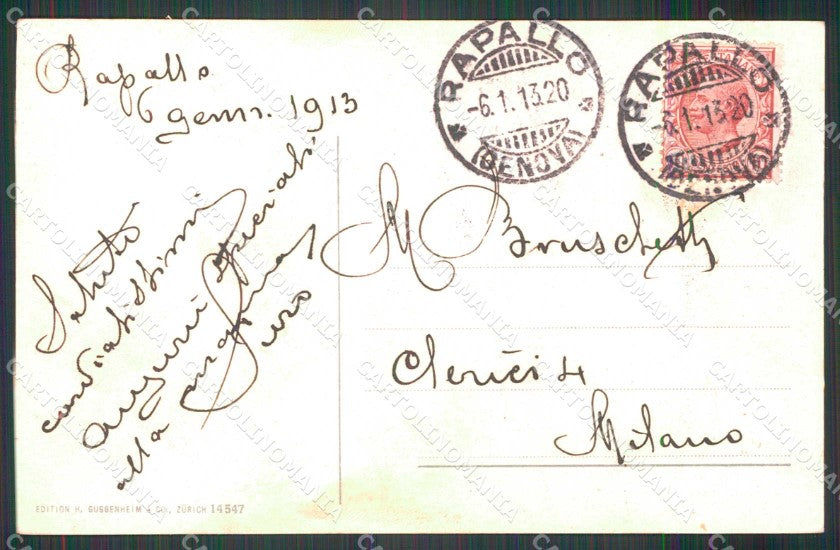 Rapallo
6 genn. 1913
Saluti
cordialissimi
auguri speciali
alla mamma
RAPALLO
-6.1.13.20
(GENOVA)
RAPALLO
-6.1.13.20
(GENOVA)
M Bruschetti
Clerici 4
Milano
EDITION H. GUGGENHEIM & Co., ZÜRICH 14547
CARTOLINOMANIA